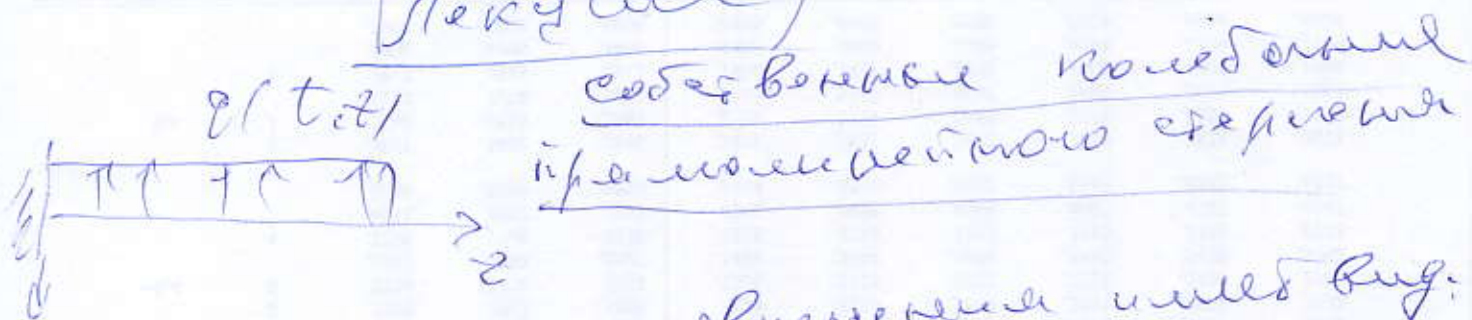 Лекция
q(t,z)
собственные колебания
прямолинейного стержня
z
движения имеет вид: